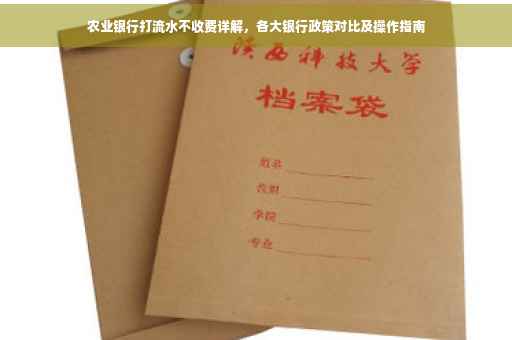 农业银行打流水不收费详解，各大银行政策对比及操作指南
陕西科技大学
档案袋
姓名
学院
专业